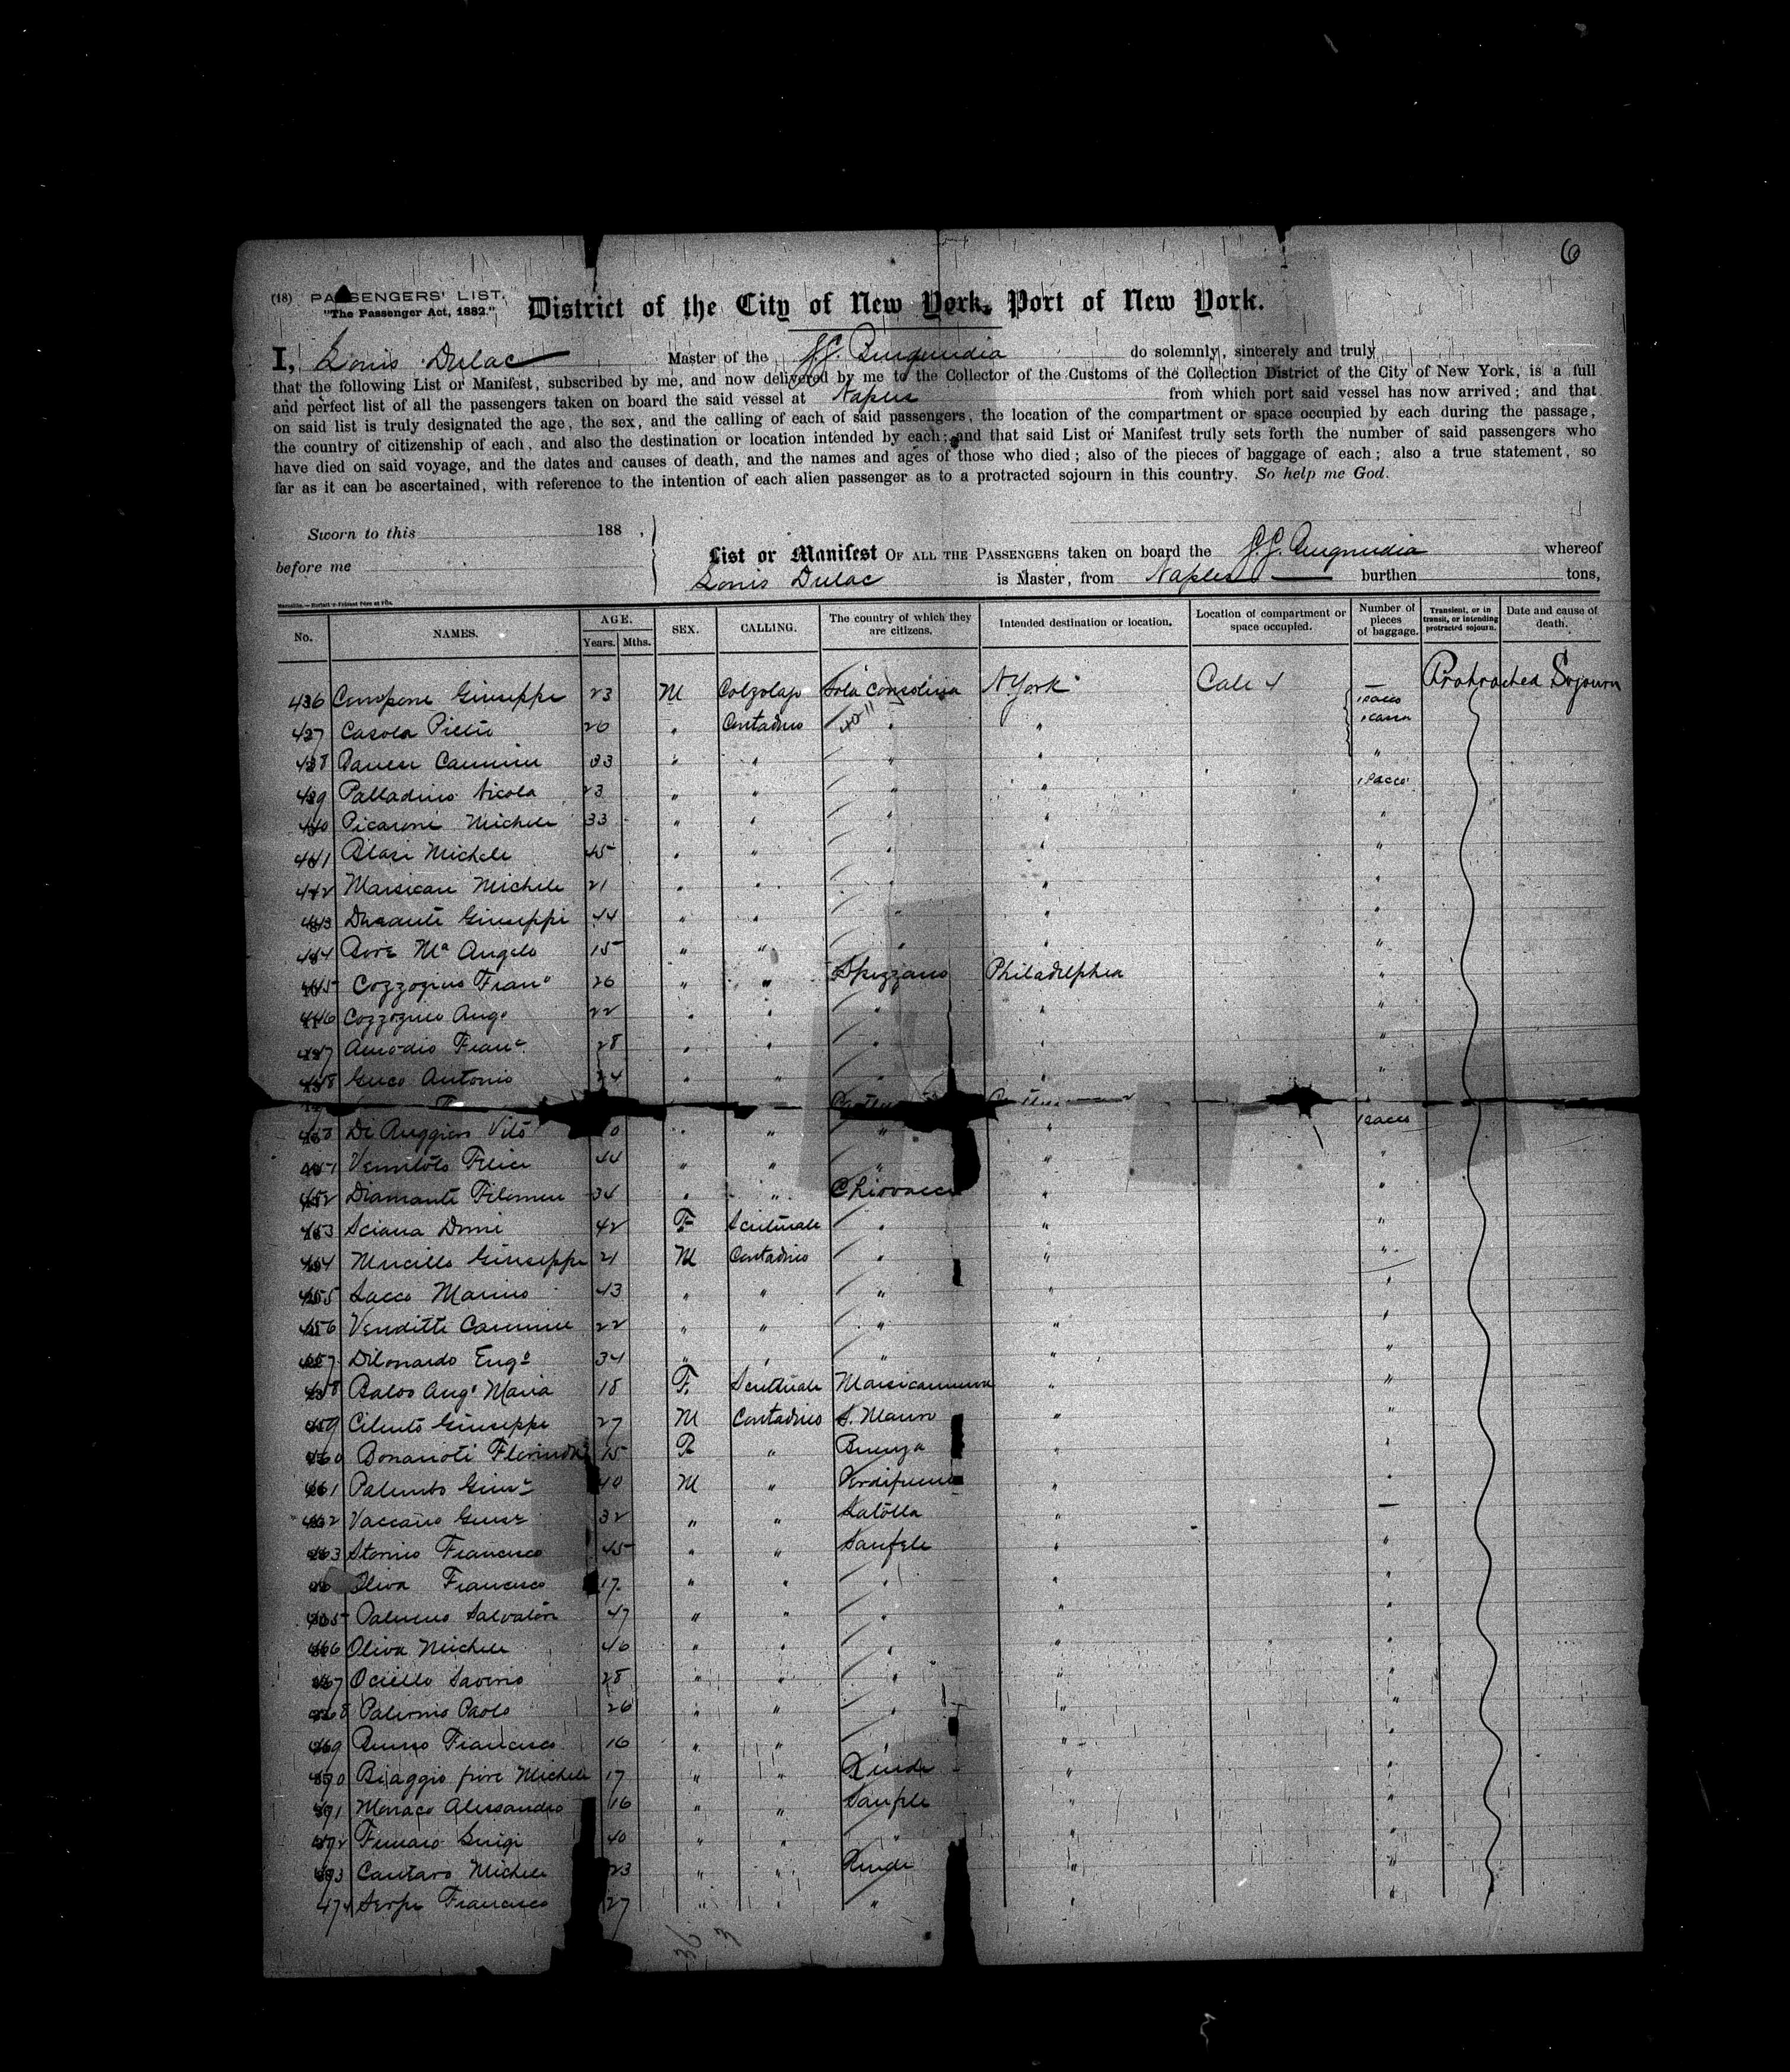 6
(18) PASSENGERS' LIST.
"The Passenger Act, 1882."
District of the City of New York, Port of New York.
I, Louis Dulac Master of the S.S. Burgundia do solemnly, sincerely and truly
that the following List or Manifest, subscribed by me, and now delivered by me to the Collector of the Customs of the Collection District of the City of New York, is a full
and perfect list of all the passengers taken on board the said vessel at Naples from which port said vessel has now arrived; and that
on said list is truly designated the age, the sex, and the calling of each of said passengers, the location of the compartment or space occupied by each during the passage,
the country of citizenship of each, and also the destination or location intended by each; and that said List or Manifest truly sets forth the number of said passengers who
have died on said voyage, and the dates and causes of death, and the names and ages of those who died; also of the pieces of baggage of each; also a true statement, so
far as it can be ascertained, with reference to the intention of each alien passenger as to a protracted sojourn in this country. So help me God.
Sworn to this 188 ,
before me
List or Manifest OF ALL THE PASSENGERS taken on board the S.S. Burgundia whereof
Louis Dulac is Master, from Naples burthen tons,
No. NAMES. AGE. Years. Mths. SEX. CALLING. The country of which they are citizens. Intended destination or location. Location of compartment or space occupied. Number of pieces of baggage. Transient, or in transit, or intending protracted sojourn. Date and cause of death.
436 Giuseppe 23 M Calzolajo Sala Consolina N York Cale 4 Protracted Sojourn
437 Casola Pietro 20 " Contadino " "
438 Carmine 33 " " " " "
439 Palladino Nicola 23 " " " " 1 sacco
440 Picarone Michele 33 " " " " "
441 Blasi Michele 45 " " " " "
442 Marsican Michele 21 " " " " "
443 Durante Giuseppe 44 " " " " "
444 Ma Angelo 15 " " " " "
445 Cozzogino Franco 26 " " Spezzano Philadelphia "
446 Cozzogino Ango 22 " " " " "
447 Amodio Franc 28 " " " " "
448 Greco Antonio 24 " " " " "
450 Di Ruggiero Vito " " " " 1 sacco
451 Felice 44 " " " " "
452 Diamante Filomen 34 " " " "
453 Sciana Domi 42 F " " "
454 Murillo Giuseppe 21 M Contadino " " "
455 Sacco Marino 43 " " " " "
456 Venditti Carmine 22 " " " " "
457 Dilonardo Engo 34 " " " " "
458 Ango Maria 18 F Marsicanuova " "
459 Cilento Giuseppe 27 M Contadino S. Mauro " "
460 15 F " " "
461 Palumbo 40 M " Perdifumo " "
462 Vaccaro 32 " " " —
463 Francesco 45 " " Sanfele " "
Oliva Francesco 17 " " " " "
465 Salvatore 47 " " " " "
466 Oliva Michele 46 " " " " "
467 Saverio 28 " " " " "
468 Palermo Paolo 26 " " " " "
469 Russo Francesco 16 " " " " "
470 Biaggio fiore Michele 17 " " Rende " "
471 Monaco Alessandro 16 " " Sanfele " "
472 Luigi 40 " " " " "
473 Cantaro Michele 23 " " Rende " "
474 Serpe Francesco 27 " " " " "